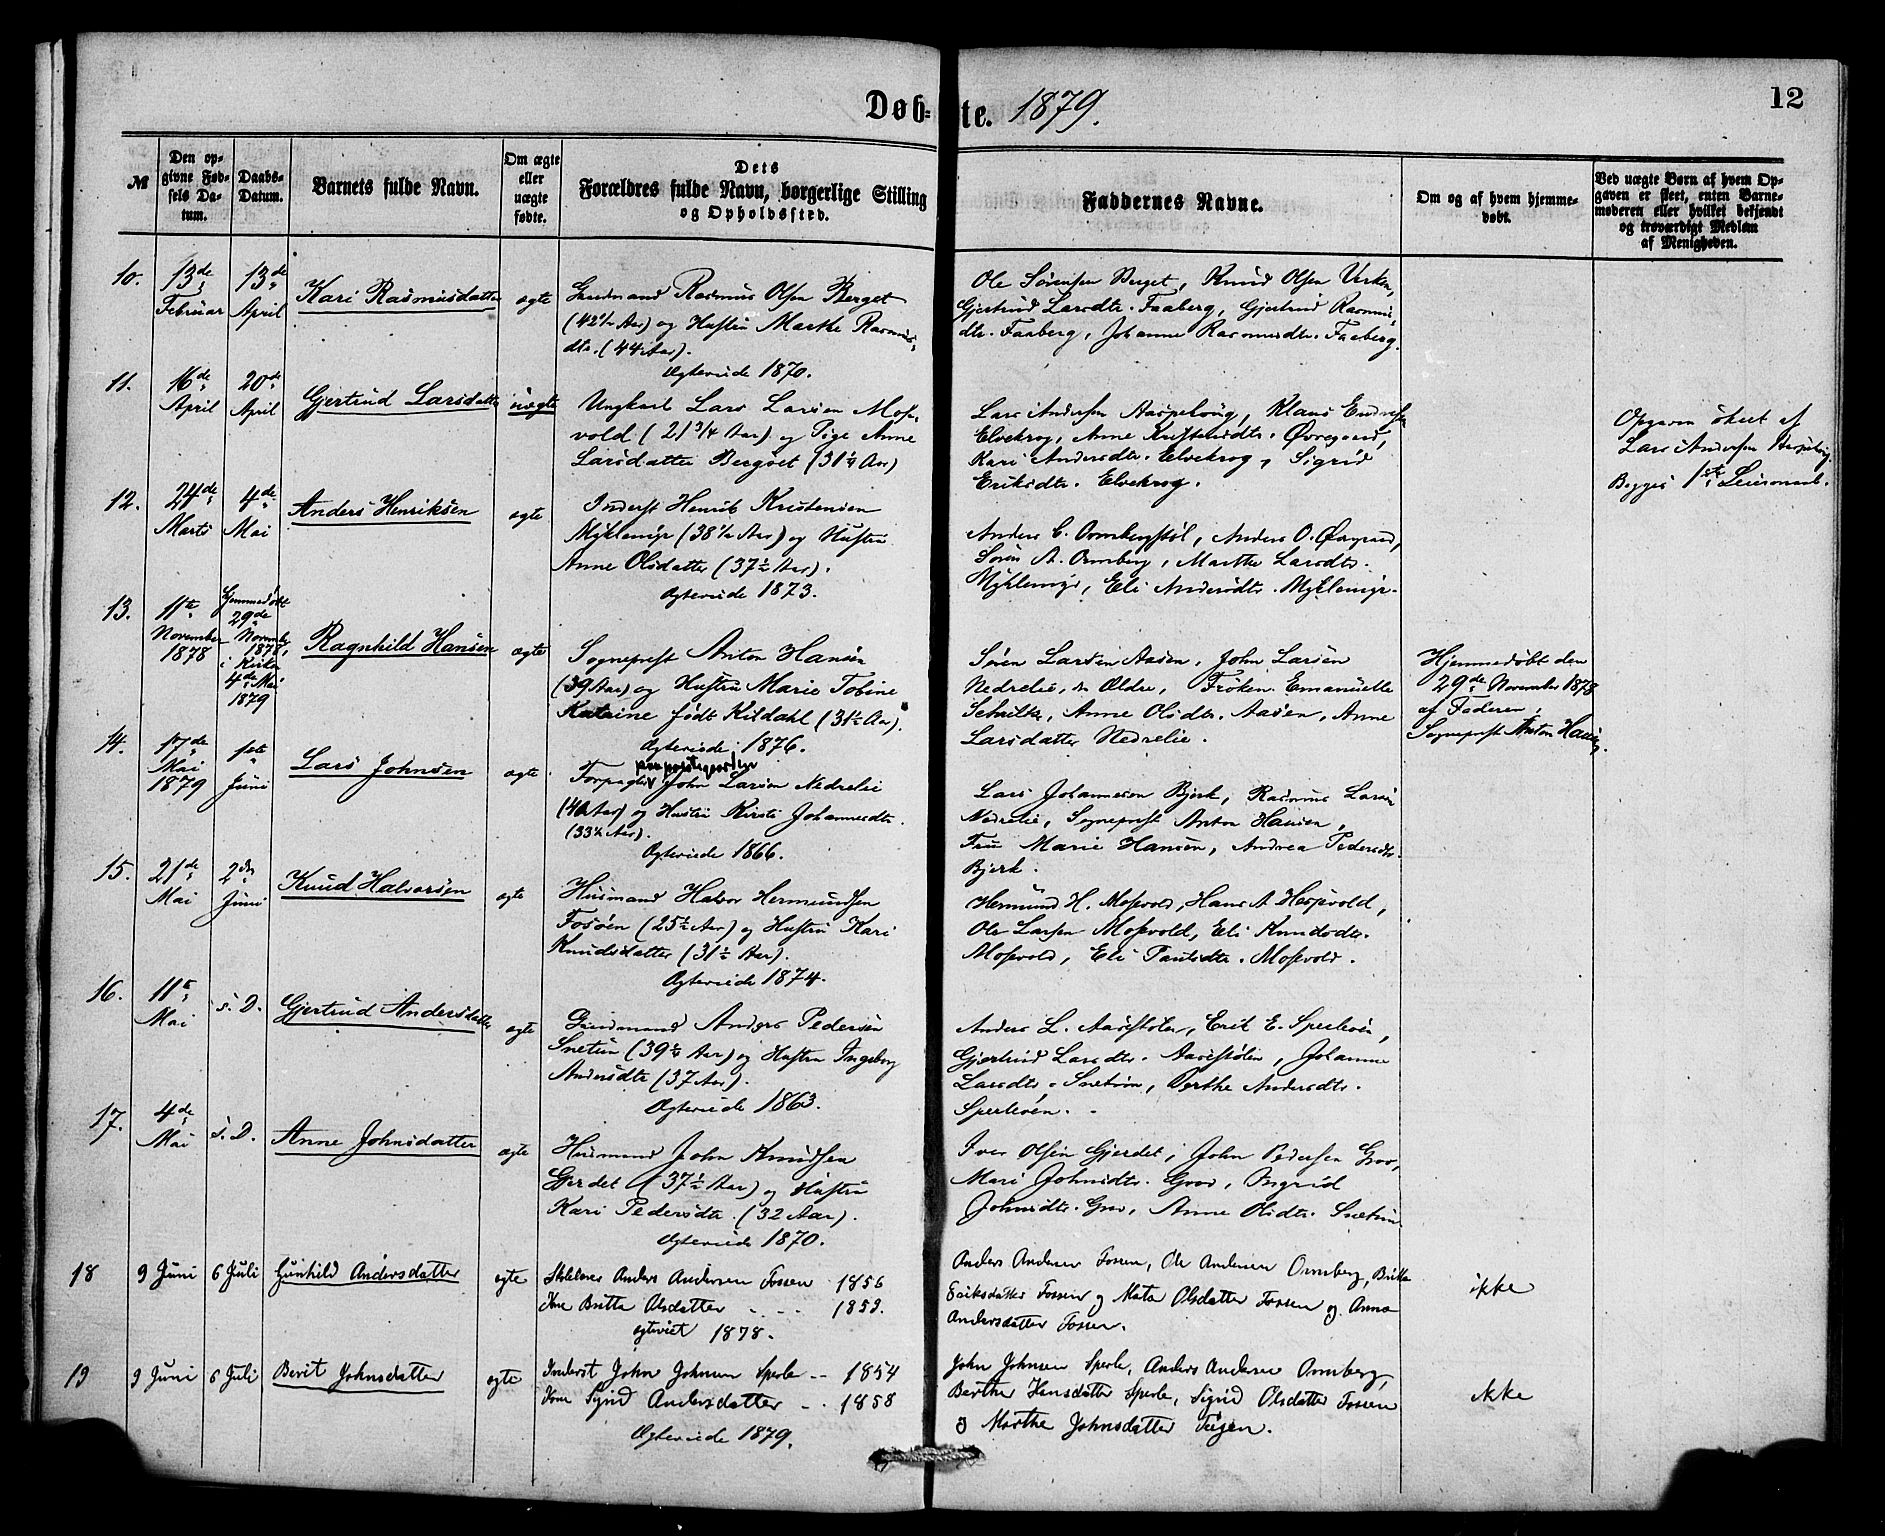 Døb-te. 1879.
12
№
Den opgivne Fødsels Datum.
Daabs-Datum.
Barnets fulde Navn.
Om ægte eller uægte født.
Dets Forældres fulde Navn, borgerlige Stilling og Opholdssted.
Faddernes Navne.
Om og af hvem hjemmedøbt.
Ved uægte Børn af hvem Opgaven er skeet, enten Barnemoderen eller hvilket bekjendt og troværdigt Medlem af Menigheden.
10.
13de Februar
13de April
Kari Rasmusdatter
ægte
Rasmus Olsen Berget
(42½ Aar) og Hustru Marthe Rasmus-
dtr. (44 Aar).
Ægteviede 1870.
Ole Sørensen Berget, Knud Olsen
Gjertrud Larsdtr. Faaberg, Gjertrud Rasmus-
dtr. Faaberg, Johanne Rasmusdtr. Faaberg.
11.
16de April
20de April
Gjertrud Larsdatter
uægte
Ungkarl Lars Larsen Mose-
vold (21 3/4 Aar) og Pige Anne
Larsdatter Bergset (31¼ Aar)
Lars Andersen, Klaus
Elvekrog, Anne Øvregaard,
Kari Andersdtr. Elvekrog, Sigrid
Eriksdtr. Elvekrog.
Opgaven skeet af
Lars Andersen
Begges 1ste Leiermaal.
12.
24de Marts
4de Mai
Anders Henriksen
ægte
Inderst Henrik Kristensen
Myklemyr (38½ Aar) og Hustru
Anne Olsdatter (37½ Aar).
Ægteviede 1873.
Anders C. Ormbergstøl, Anders O. Øvregaard,
Søren A. Ormberg, Marthe Larsdtr.
Myklemyr, Eli Andersdtr. Myklemyr.
13.
11te November 1878
Hjemmedøbt 29de November 1878, i Kirken 4de Mai 1879
Ragnhild Hansen
ægte
Sogneprest Anton Hansen
(39 Aar) og Hustru Marie Tobine
Katrine født Kildahl (31½ Aar).
Ægteviede 1876.
Søren Larsen Aasen, John Larsen
Nedrelie, d. Ældre, Frøken Emanuelle
Anne Olsdtr. Aasen, Anne
Larsdatter Nedrelie.
Hjemmedøbt den
29de November 1878
af Faderen,
Sogneprest Anton Hansen.
14.
17de Mai 1879
1ste Juni
Lars Johnsen
ægte
paa prestegaarden
Forpagter John Larsen Nedrelie
(40 Aar) og Hustru Kirsti Johannesdtr.
(33½ Aar).
Ægteviede 1866.
Lars Johannesen Bjerk, Rasmus Larsen
Nedrelie, Sogneprest Anton Hansen,
Fru Marie Hansen, Andrea Pedersdtr.
Bjerk.
15.
21de Mai
2den Juni
Knud Halvorsen
ægte
Husmand Halvor Hermundsen
Fosøen (25½ Aar) og Hustru Kari
Knudsdatter (31½ Aar).
Ægteviede 1874.
Hermund H. Mosevold, Hans A. Hespvold,
Ole Larsen Mosevold, Eli Knudsdtr.
Mosevold, Eli Paulsdtr. Mosevold.
16.
11te Mai
s. D.
Gjertrud Andersdatter
ægte
Anders Pedersen
Snetun (39½ Aar) og Hustru Ingeborg
Andersdtr (37 Aar).
Ægteviede 1863.
Anders L. Aasestølen, Erik E. Sperleøen,
Gjertrud Larsdtr. Aasestølen, Johanne
Larsdtr. Snetun, Berthe Andersdtr.
Sperleøen.
17.
4de Mai
s. D.
Anne Johnsdatter
ægte
Husmand John Knudsen
Gjerdet (37½ Aar) og Hustru
Kari Pedersdtr. (32 Aar).
Ægteviede 1870.
Iver Olsen Gjerdet, John Pedersen Grov,
Mari Johnsdtr. Grov, Ingrid
Johnsdtr. Grov, Anne Olsdtr. Snetun
18
9 Juni
6 Juli
Gunhild Andersdatter
ægte
Skolelærer Anders Andersen Fossen 1856
Kone Britta Olsdatter 1853.
ægteviet 1878.
Anders Andersen Fossen, Ole Andersen Ormberg, Britta
Eriksdatter Fossen og Mata Olsdatter Fossen og Anna
Andersdatter Fossen.
ikke
19
9 Juni
6 Juli
Berit Johnsdatter
ægte
Inderst John Johnsen Sperle 1854
Kone Sigrid Andersdatter 1858
Ægteviede 1879.
John Johnsen Sperle, Anders Andersen Ormberg,
Berthe Hansdatter Sperle, Sigrid Olsdatter Fossen
og Marthe Johnsdatter Teigen.
ikke